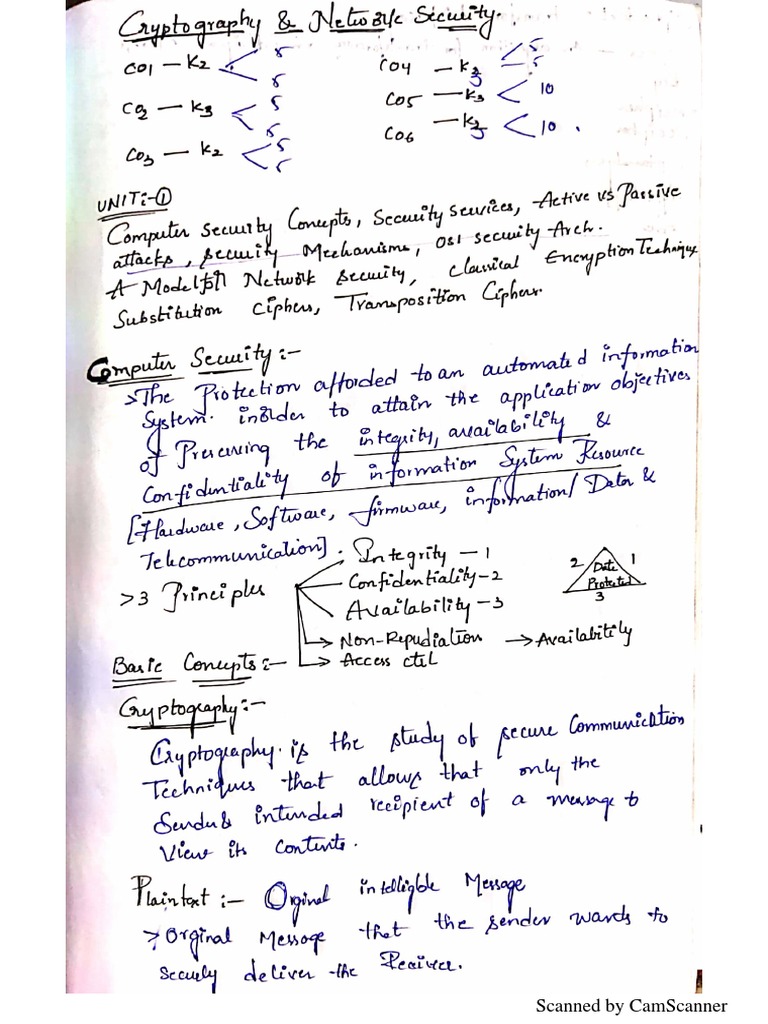 Cryptography & Network Security.
CO1 — K2 < 5 5
CO2 — K3 < 5 5
CO3 — K2 < 5 5
CO4 — K3 < 5 5
CO5 — K3 < 10
CO6 — K3 < 10.
UNIT:-①
Computer Security Concepts, Security Services, Active vs Passive
attacks, Security Mechanisms, OSI Security Arch.
A Model for Network Security, Classical Encryption Technique
Substitution Ciphers, Transposition Ciphers.
Computer Security:-
> The Protection afforded to an automated information
System. inorder to attain the application objectives
of Preserving the integrity, availability &
Confidentiality of information System Resource
[Hardware, Software, firmware, information/Data &
Telecommunication].
> 3 Principles
Integrity — 1
Confidentiality - 2
Availability - 3
Non-Repudiation → Availabitily
Access ctrl
2 1
Data
Protected
3
Basic Concepts:-
Cryptography:-
Cryptography. is the study of secure Communication
Techniques that allows that only the
Sender & intended recipient of a message to
View its Contents.
Plaintext :- Orginal intelligble Message
> Orginal Message that the sender wants to
Securly deliver the Receiver.
Scanned by CamScanner